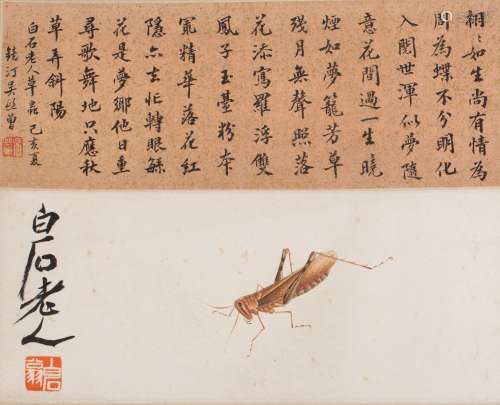 栩〻如生尚有情為
周為蝶不分明化
人閱世渾似夢隨
意花間過一生曉
煙如夢籠芳草
殘月無聲照落
花添寫羅浮雙
鳳子玉臺粉本
冣精華落花紅
隱去忙轉眼
花是夢鄉他日重
尋歌舞地只應秋
草弄斜陽
白石老人草蟲 己亥夏
白石老人